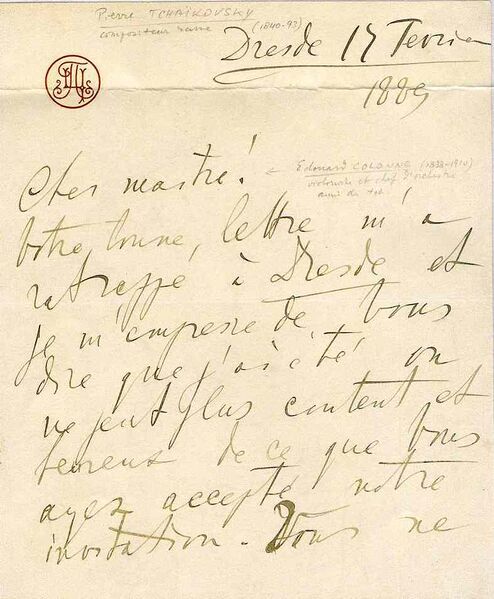 Pierre TCHAÏKOVSKY (1840-93)
compositeur russe
Dresde 17 Fevrier
1889
Cher maître!
Edouard COLONNE (1838-1910)
violoniste et chef d'orchestre
ami de
Votre bonne lettre m'a
ratrappé à Dresde et
je m'empresse de Vous
dire que j'ai été on
ne peut plus content et
heureux de ce que Vous
ayez accepté notre
invitation. Vous ne